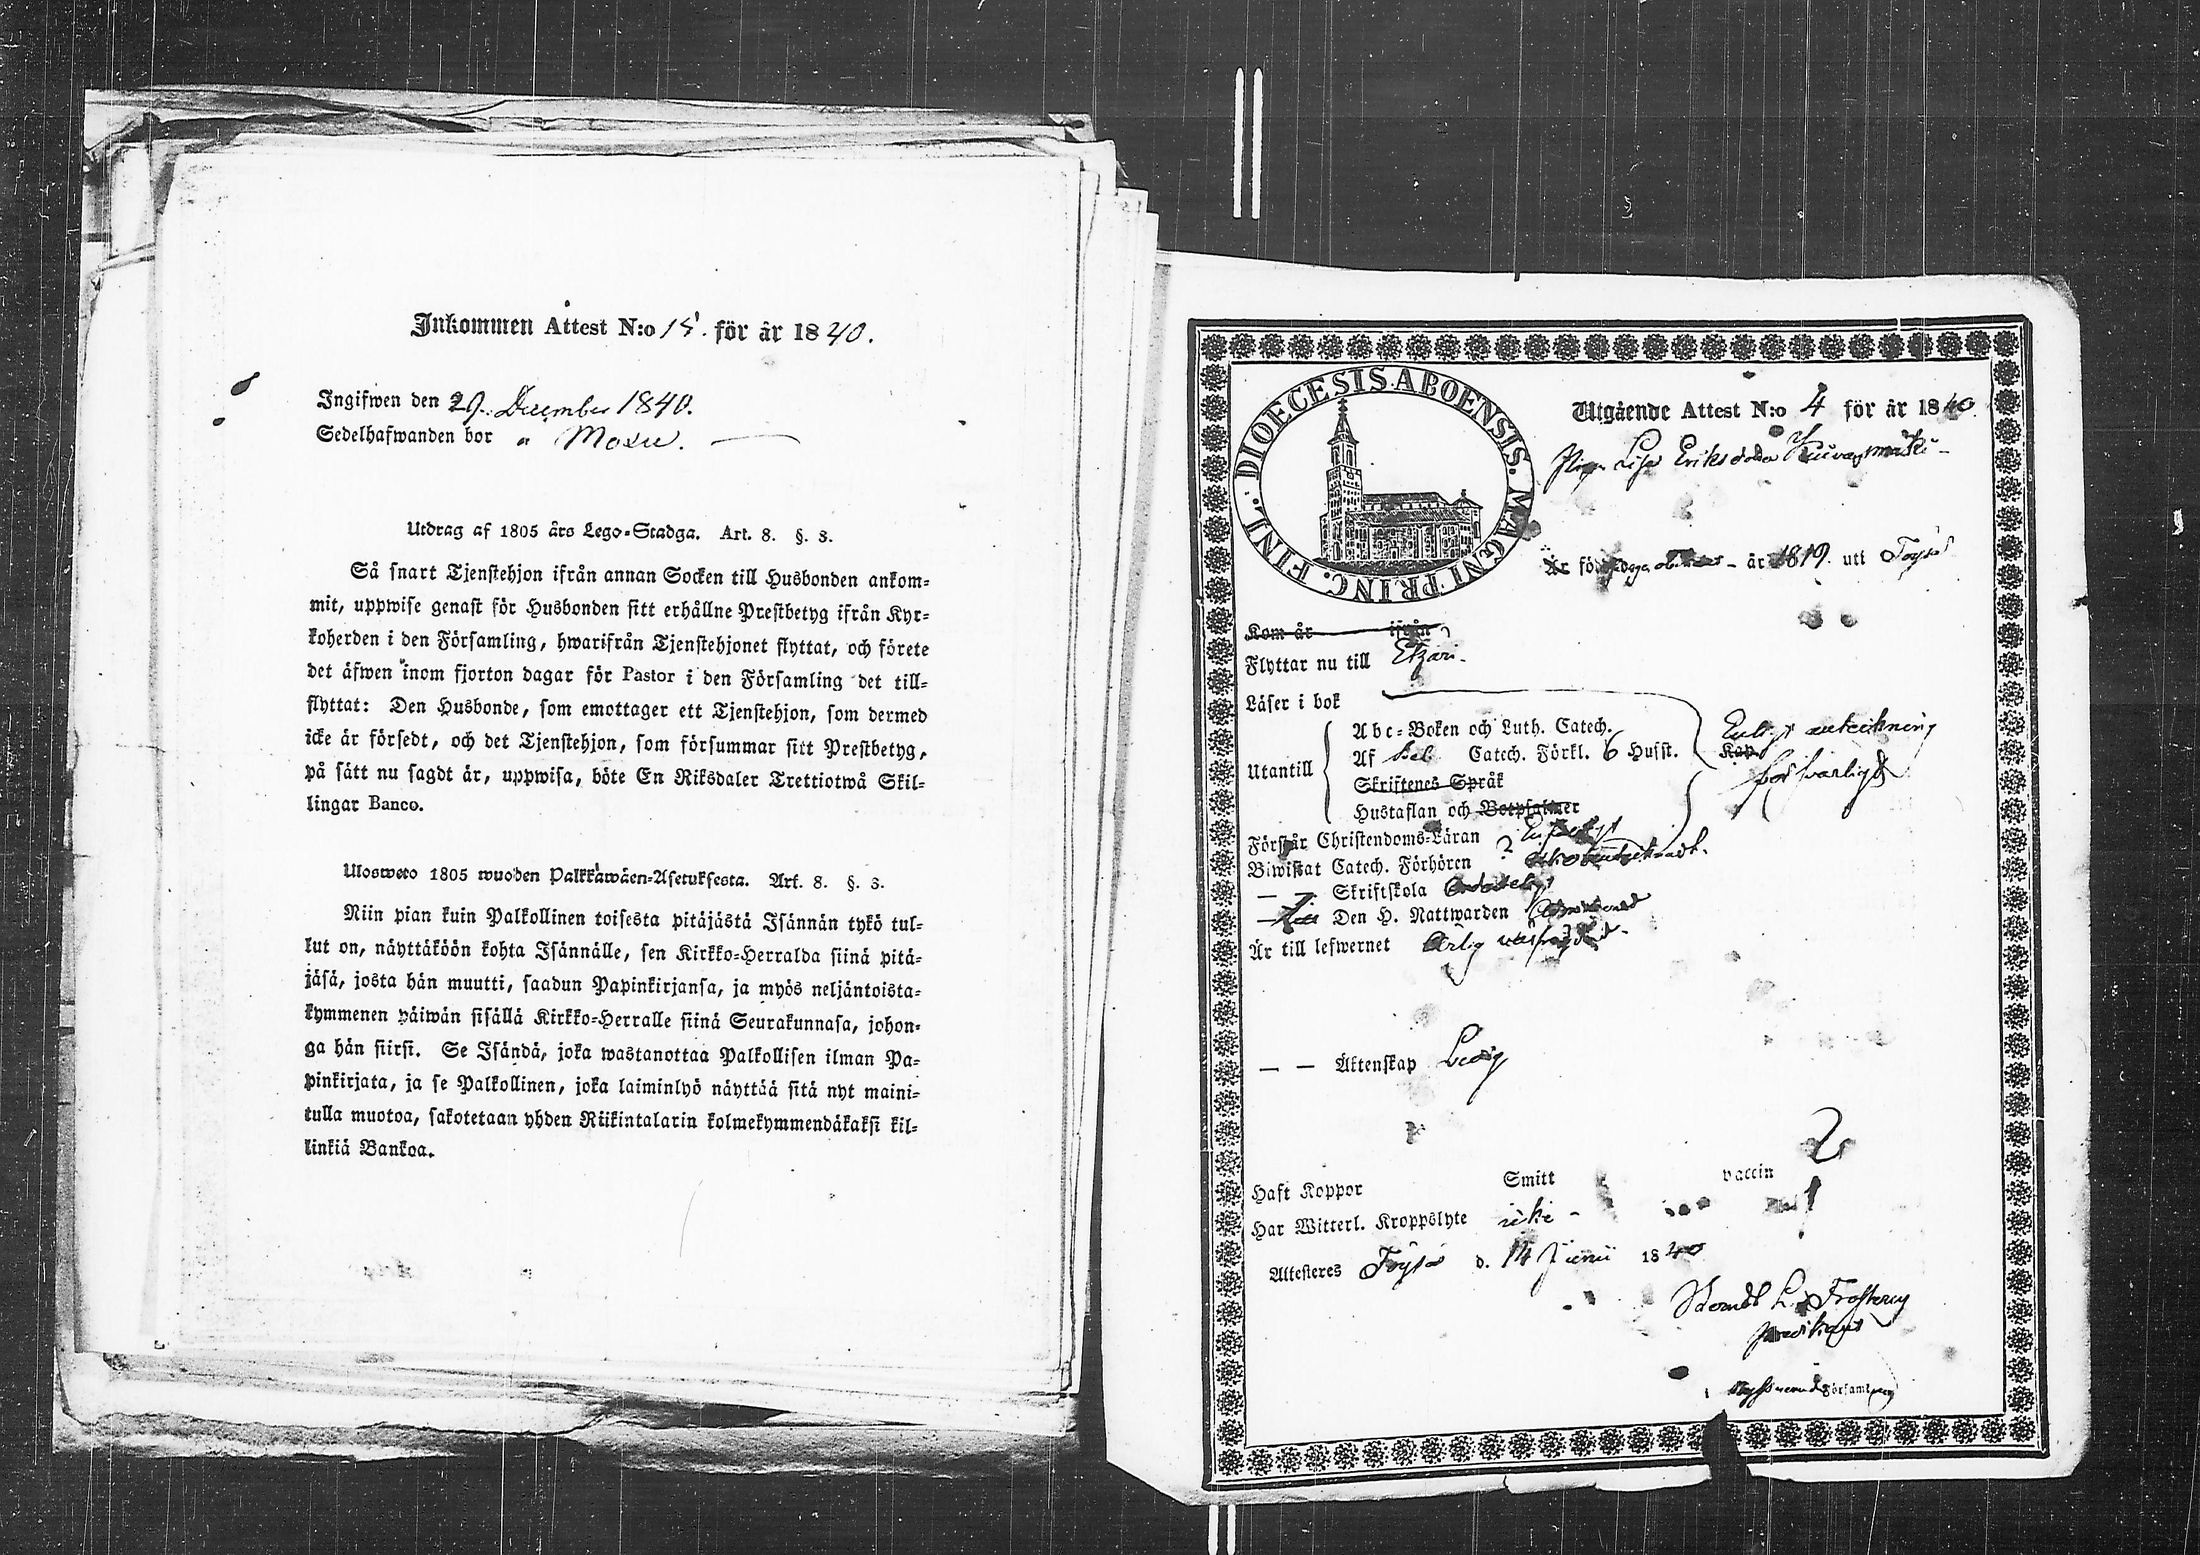 Inkommen Attest N:o 15. för år 1840.
Ingifwen den 29. December 1840.
Sedelhafwanden bor a Moxu.
Utdrag af 1805 års Lego-Stadga. Art. 8. §. 3.
Så snart Tjenstehjon ifrån annan Socken till Husbonden ankom-
mit, uppwise genast för Husbonden sitt erhållne Prestbetyg ifrån Kyr-
koherden i den Församling, hwarifrån Tjenstehjonet flyttat, och förete
det äfwen inom fjorton dagar för Pastor i den Församling det till-
flyttat: Den Husbonde, som emottager ett Tjenstehjon, som dermed
icke är försedt, och det Tjenstehjon, som försummar sitt Prestbetyg,
på sätt nu sagdt är, uppwisa, böte En Riksdaler Trettiotwå Skil-
lingar Banco.
Ulosweto 1805 wuoden Palkkawäen-Asetuksesta. Art. 8. §. 3.
Niin pian kuin Palkollinen toisesta pitäjästä Isännän tykö tul-
lut on, näyttäköön kohta Isännälle, sen Kirkko-Herralda siinä pitä-
jäsä, josta hän muutti, saadun Papinkirjansa, ja myös neljäntoista-
kymmenen päiwän sisällä Kirkko-Herralle siinä Seurakunnasa, johon-
ga hän siirsi. Se Isändä, joka wastanottaa Palkollisen ilman Pa-
pinkirjata, ja se Palkollinen, joka laiminlyö näyttää sitä nyt maini-
tulla muotoa, sakotetaan yhden Riikintalarin kolmekymmendäkaksi kil-
linkiä Bankoa.
FINL. DIOECESIS ABOENSIS. MAGNI PRINC.
Utgående Attest N:o 4 för år 1840.
Pigan Lisa Eriksdotter
Är född år 1819. utl Töysä
Kom år ifrån
Flyttar nu till Etzäri.
Läser i bok
Utantill
Abc-Boken och Luth. Catech.
Af Catech. Förkl. 6 Husst. Kap.
Skriftenes Språk
Hustaflan och Botpsalmer
Enligt anteckning
försvarligt
Förstår Christendoms-Läran
Biwistat Catech. Förhören
— — Skriftskola
— — Den H. Nattwarden
Är till lefwernet ärlig
— — Äktenskap Ledig
Haft Koppor Smitt vaccin
Har Witterl. Kroppslyte icke -
Attesteres Töysä d. 14 Junii 1840
L. Frosterus
Predikant
Församling